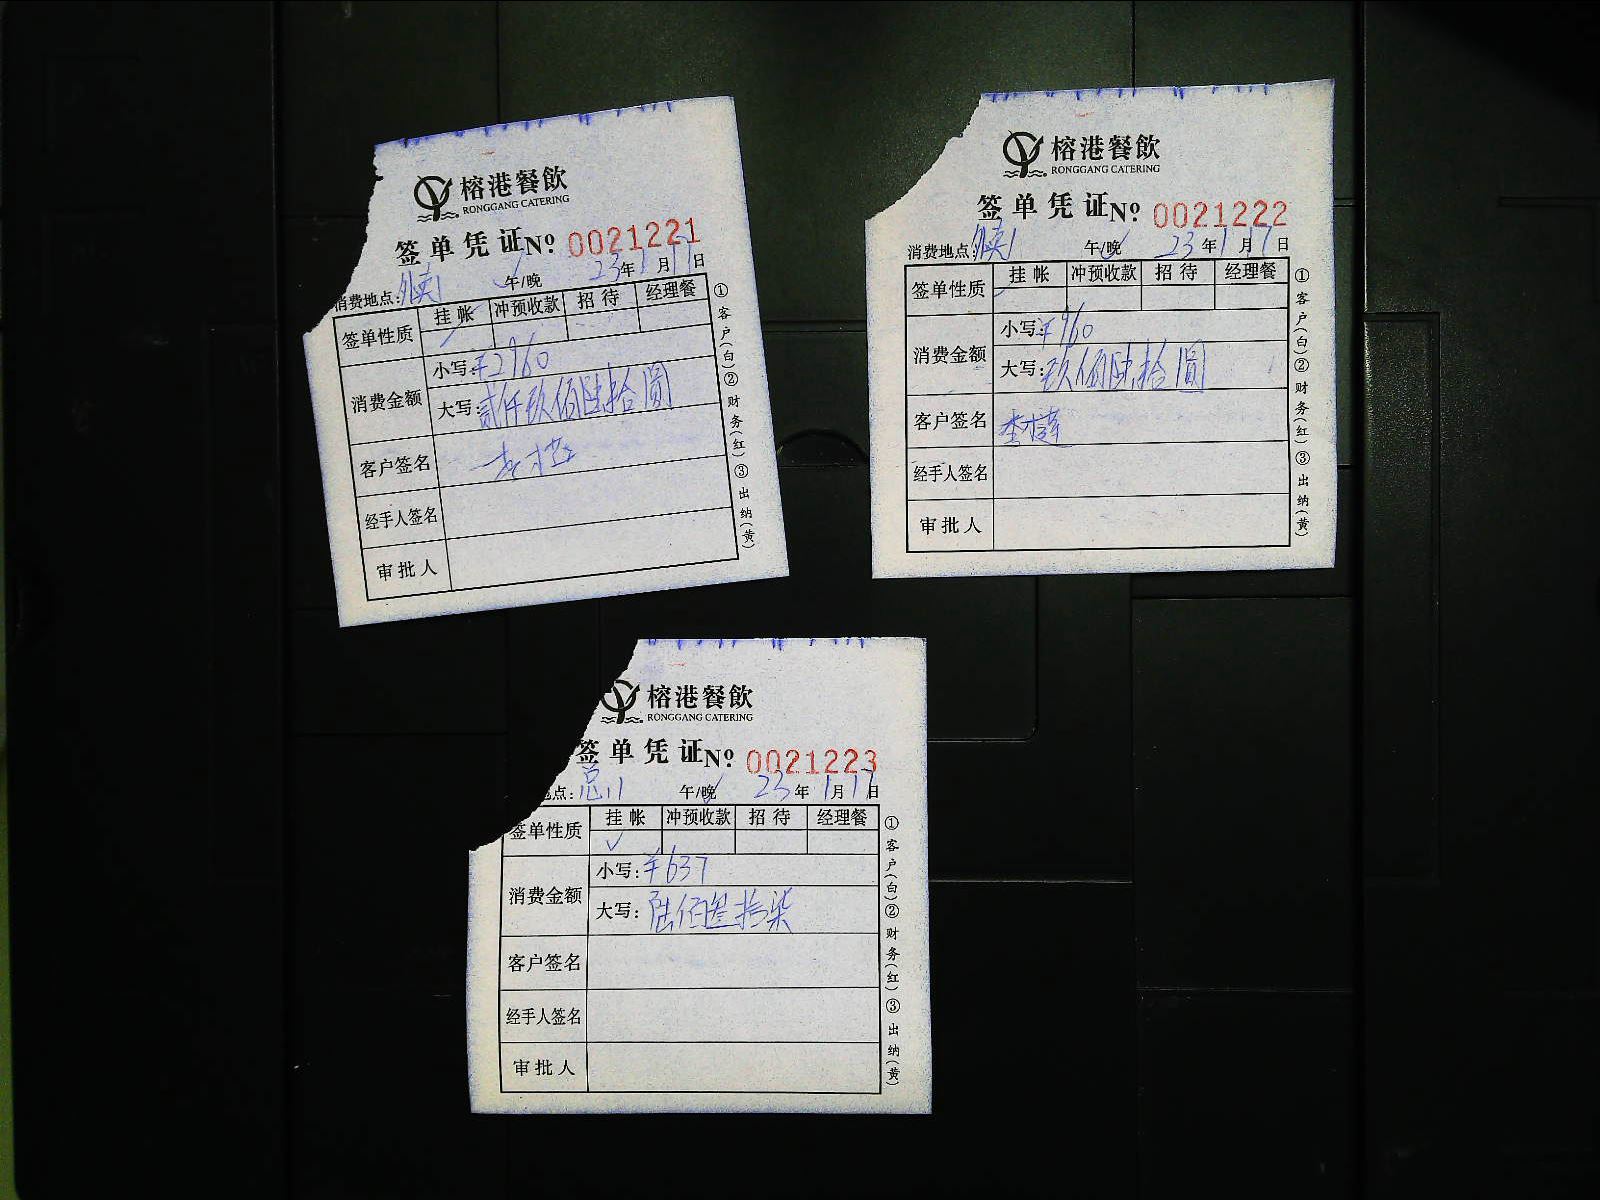 榕港餐飲
RONGGANG CATERING
签单凭证№ 0021221
消费地点: 午/晚 23年1月17日
签单性质 挂帐 冲预收款 招待 经理餐
消费金额 小写:¥2960
大写:贰仟玖佰陆拾圆
客户签名
经手人签名
审批人
①客户(白)②财务(红)③出纳(黄)
榕港餐飲
RONGGANG CATERING
签单凭证№ 0021222
消费地点: 午/晚 23年1月17日
签单性质 挂帐 冲预收款 招待 经理餐
消费金额 小写:¥960
大写:玖佰陆拾圆
客户签名
经手人签名
审批人
①客户(白)②财务(红)③出纳(黄)
榕港餐飲
RONGGANG CATERING
签单凭证№ 0021223
点:总 午/晚 23年1月17日
签单性质 挂帐 冲预收款 招待 经理餐
✓
消费金额 小写:¥637
大写:陆佰叁拾柒
客户签名
经手人签名
审批人
①客户(白)②财务(红)③出纳(黄)